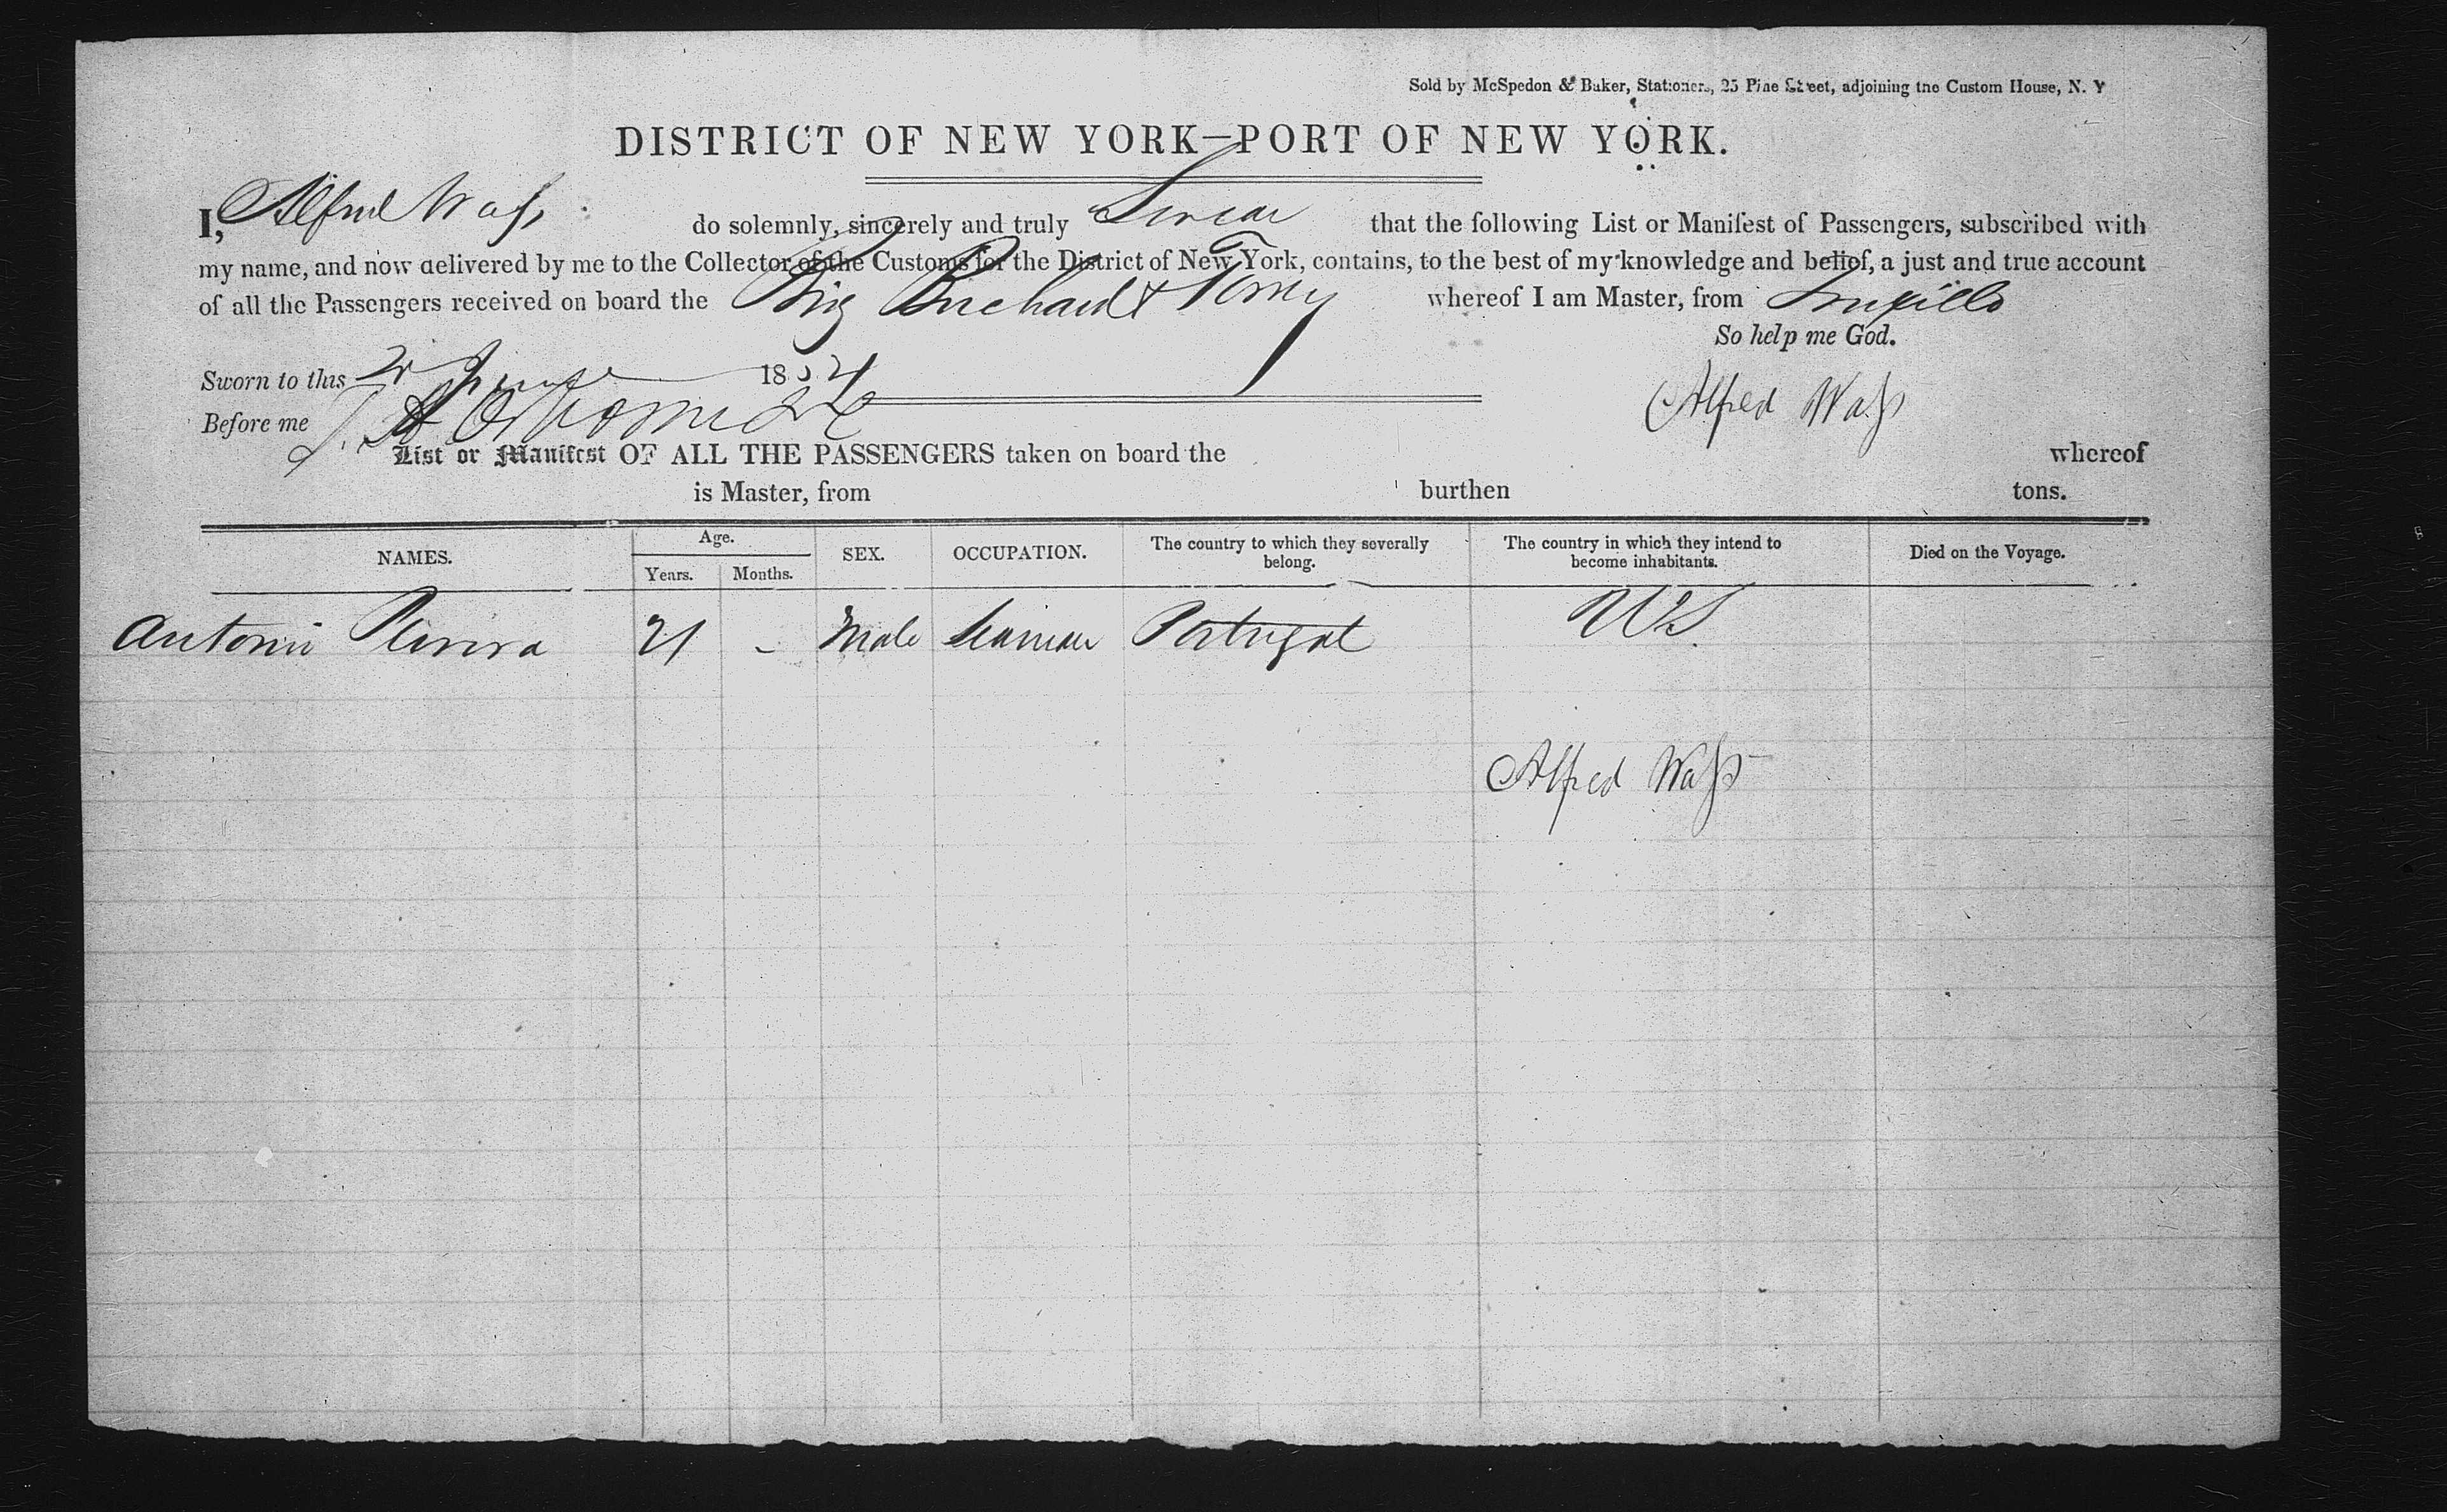 Sold by McSpedon & Baker, Stationers, 25 Pine Street, adjoining the Custom House, N. Y
DISTRICT OF NEW YORK—PORT OF NEW YORK.
I, Alfred Wass do solemnly, sincerely and truly Swear that the following List or Manifest of Passengers, subscribed with
my name, and now delivered by me to the Collector of the Customs for the District of New York, contains, to the best of my knowledge and belief, a just and true account
of all the Passengers received on board the Brig & Torrey whereof I am Master, from Truxillo
So help me God.
Sworn to this 2 June 1854
Before me
Alfred Wass
List or Manifest OF ALL THE PASSENGERS taken on board the whereof
is Master, from burthen tons.
NAMES. Age. Years. Months. SEX. OCCUPATION. The country to which they severally belong. The country in which they intend to become inhabitants. Died on the Voyage.
Antonio 21 - Male Seaman Portugal US.
Alfred Wass